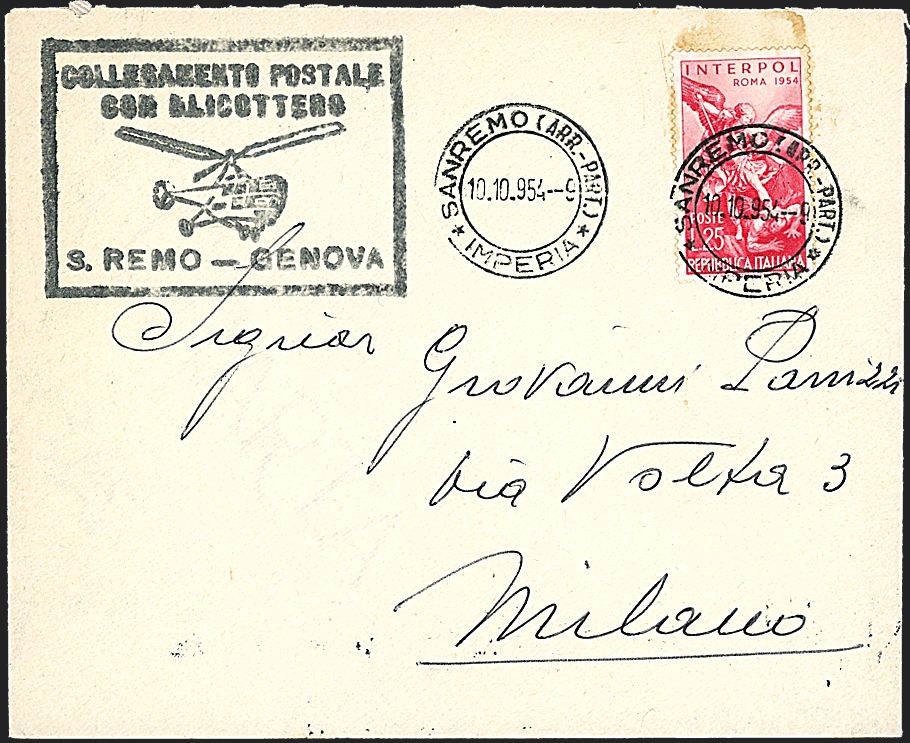 COLLEGAMENTO POSTALE
CON ELICOTTERO
S. REMO — GENOVA
SANREMO (ARR.-PART.)
10.10.954.-9
* IMPERIA *
INTERPOL
ROMA 1954
POSTE
L.25
REPUBBLICA ITALIANA
SANREMO (ARR.-PART.)
10.10.954.-9
* IMPERIA *
Signor Giovanni Panizzi
Via Volta 3
Milano